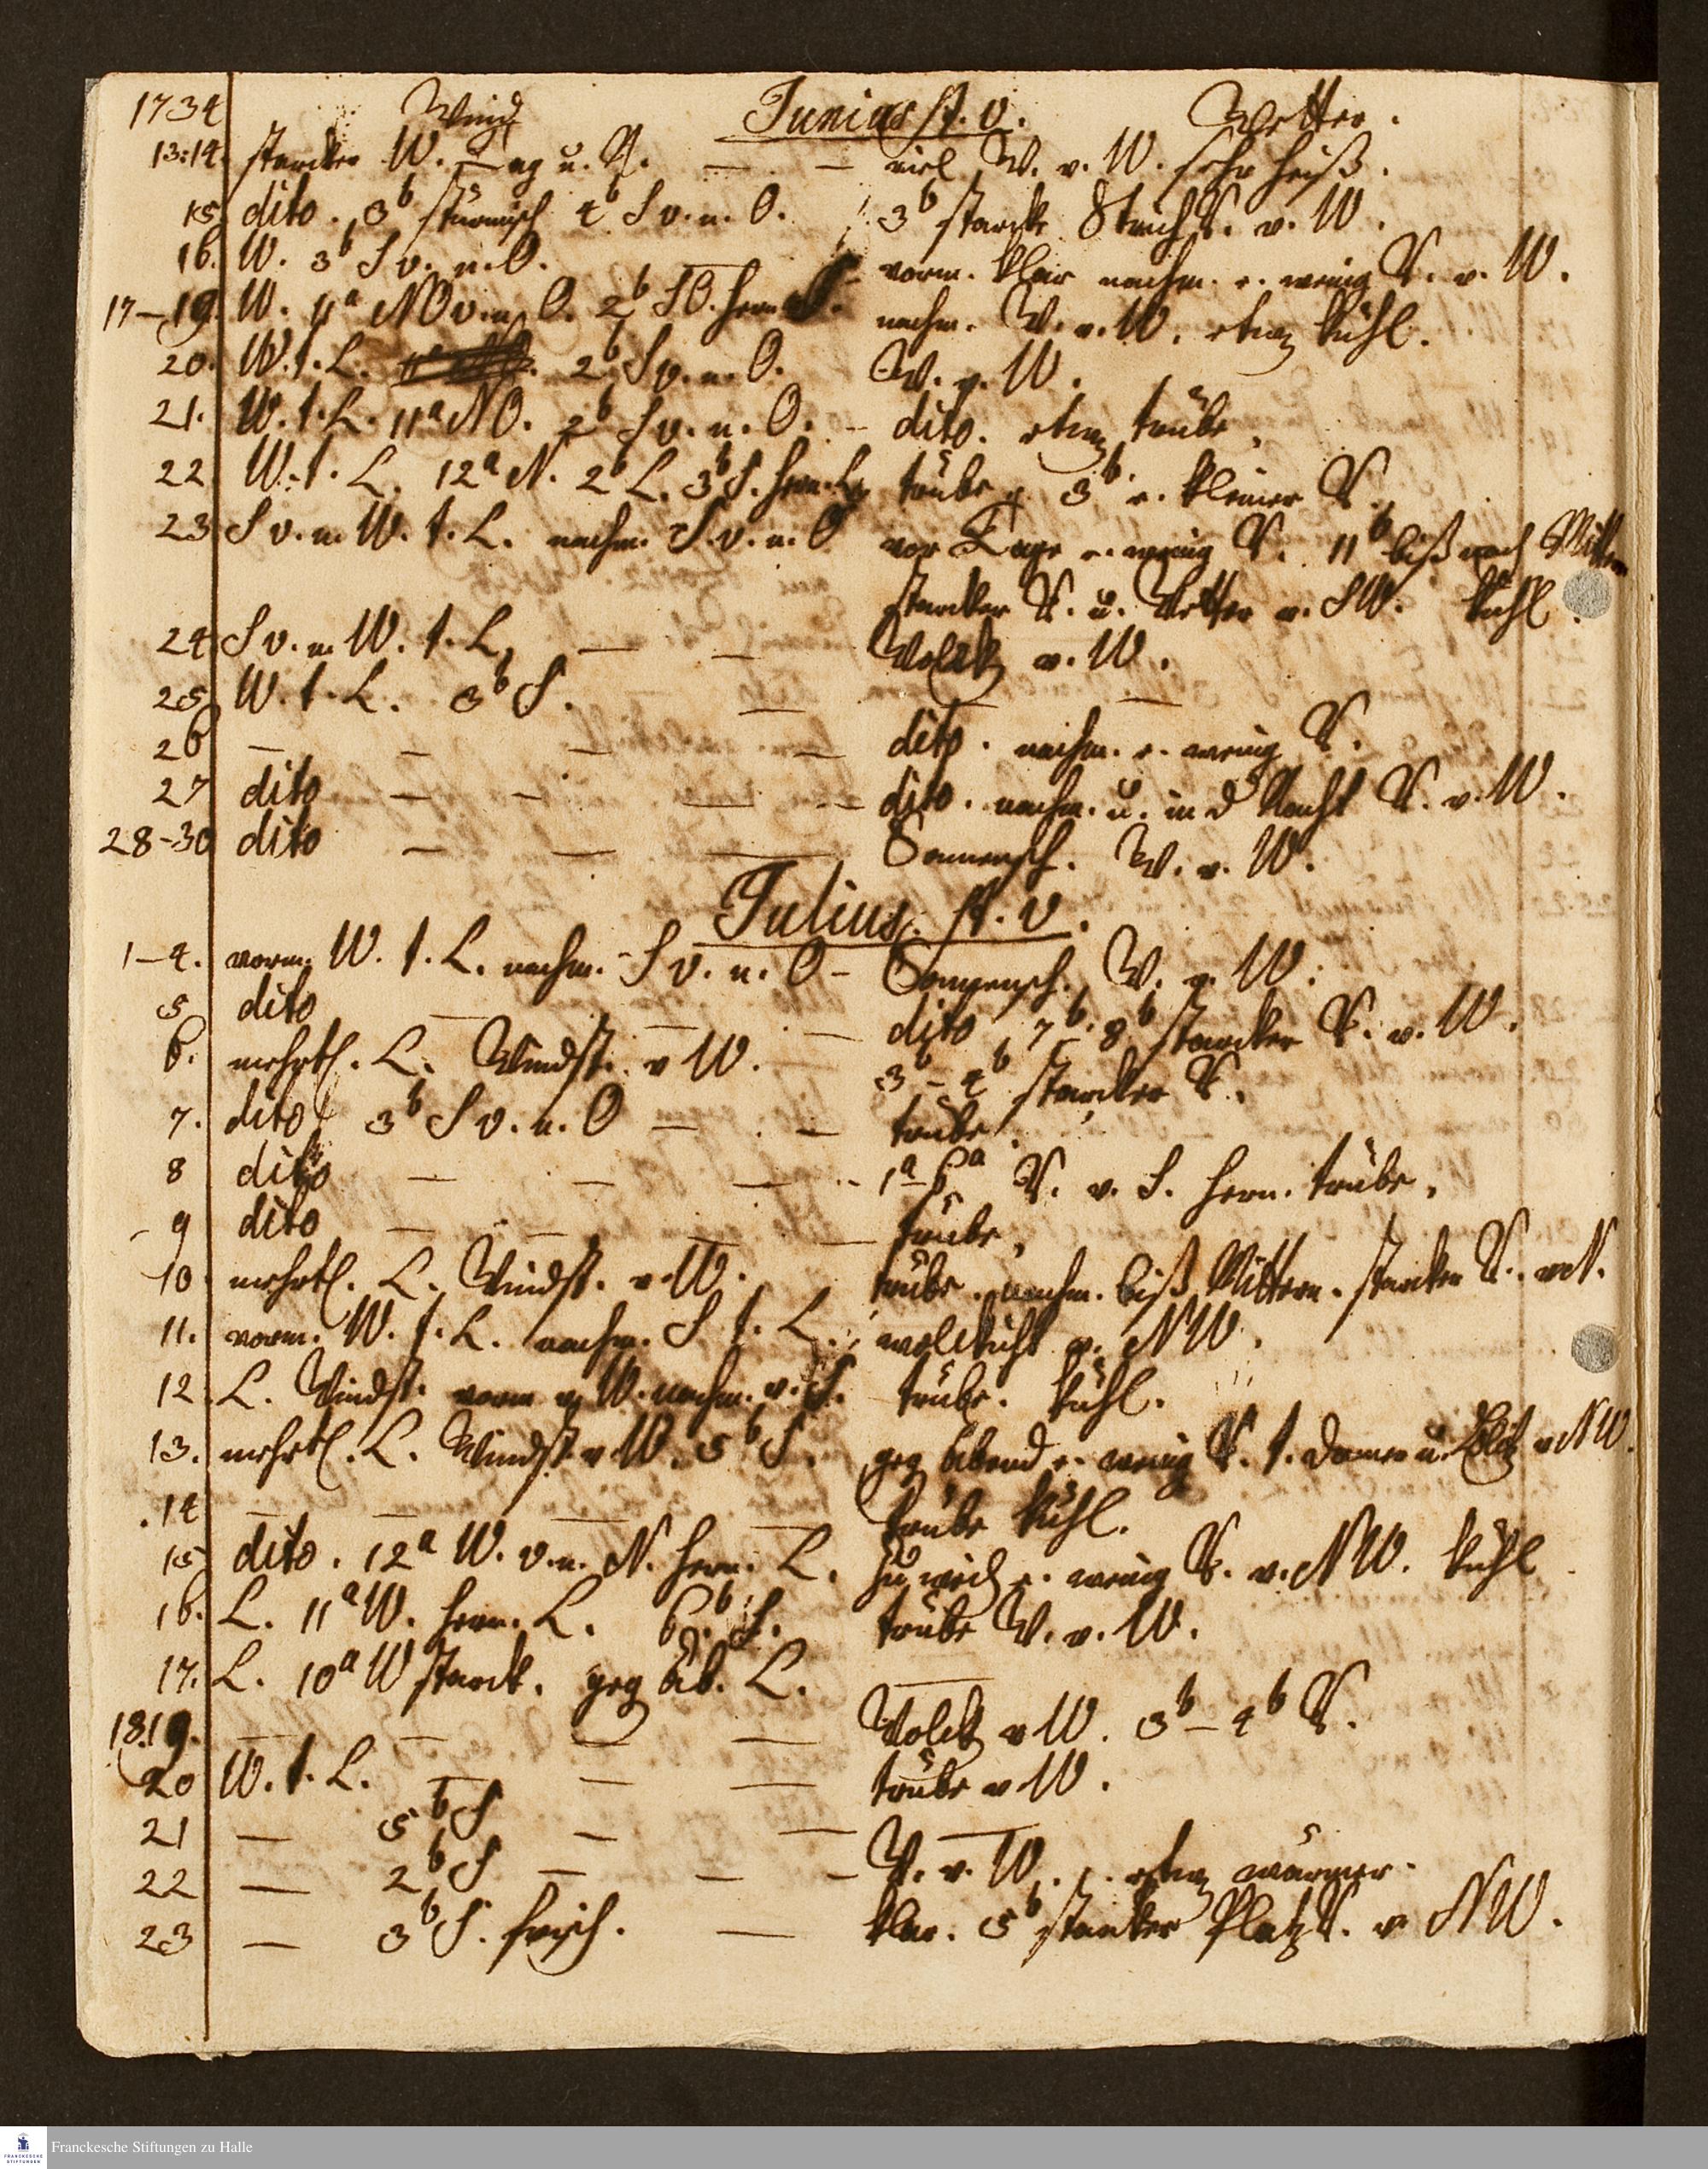 1734 Wind Junius st. v. Wetter.
13:14. starcker W. Tag u. N. — — viel W. v. W. sehr heiß.
15 dito. 3b stürmisch 4b S v. n. O. 3b starcke Strich R. v. W.
16. W. 3b S v. n. O. — vorm. klar nachm. e. wenig R. v. W.
17–19. W. 11a NO v. n. O. 2b SO. hern. S. nachm. W. v. W. etwz kühl.
20. W. t. L. 2b S v. n. O. W. v. W.
21. W. t. L. 11a NO. 2b S v. n. O. – dito. etwz trübe.
22 W. t. L. 12a N. 2b L. 3b S. hern. L. trübe 3b e. kleiner R.
23 S v. n. W. t. L. nachm. S. v. n. O vor Tage e. wenig R. 11b biß nach Mittern
starcker R. u. Wetter v. SW. kühl.
24 S v. n. W. t. L. — — Wolck v. W.
25 W. t. L. 3b S. — — —
26 — — — — dito. nachm. e. wenig R.
27 dito — — — — dito. nachm. u. in d Nacht R. v. W.
28-30 dito — — — Sonnensch. W. v. W.
Julius st. v.
1–4. vorm. W. t. L. nachm. S v. n. O – Sonnensch. W. v. W.
5 dito — — — dito 7b. 8b starcker R. v. W.
6. mehrtl. L. Windst. v W. 3b – 4b starcker R.
7. dito 3b S v. n. O — — trübe.
8 dito — — — 1a–6a R. v. S. hern. trübe.
9 dito — — — — trübe.
10 mehrtl. L. Windst. v. W. trübe. nachm. biß Mittern. starcker R. v N.
11. vorm. W. t. L. nachm. S t. L. wolckicht v. NW.
12 L. Windst. vorm v W. nachm. v. S. trübe. kühl.
13. mehrtl. L. Windst v W. 5b S. geg Abend e. wenig R. t. Donner u. Blitz v NW.
14 — — — — trübe kühl.
15 dito. 12a W. v. n. N. hern. L. e. wenig R. v. NW. kühl
16. L. 11a W. hern. L. 6b S. trübe W. v. W.
17. L. 10a W starck. geg Ab. L. —
18.19. — — — — Wolck v W. 3b – 4b R.
20 W. t. L. — — — trübe v W.
21 — 5b S — — —
22 — 2b S — — – W. v. W. etwz wärmer.
23 — 3b S. frisch. — klar. 5b starcker Platz R. v NW.
Franckesche Stiftungen zu Halle
FRANCKESCHE STIFTUNGEN